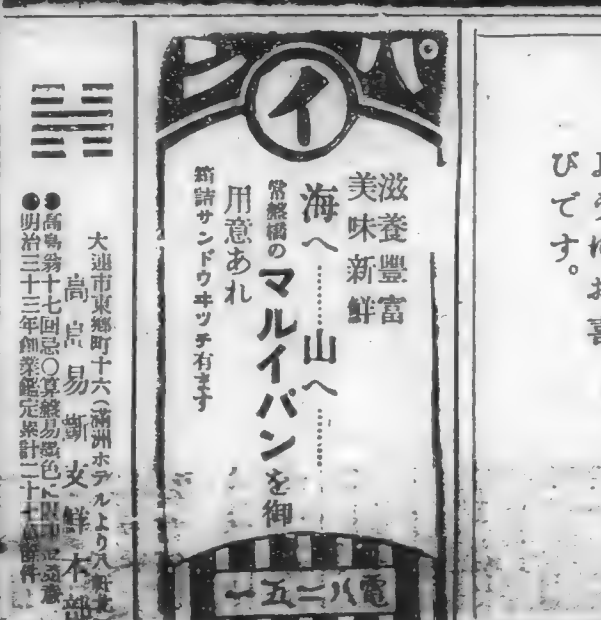 よろ お喜
びです。
パン
イ
滋養豐富
美味新鮮
海へ………山へ………
常盤橋のマルイパンを御
用意あれ
箱詰サンドウヰッチ有ます
電八二五一
大連市東郷町十六(滿洲ホテルより
高島易斷支鮮本部
●高島翁十七回忌○算盤易墨色
●明治三十三年創業鑑定累計二十